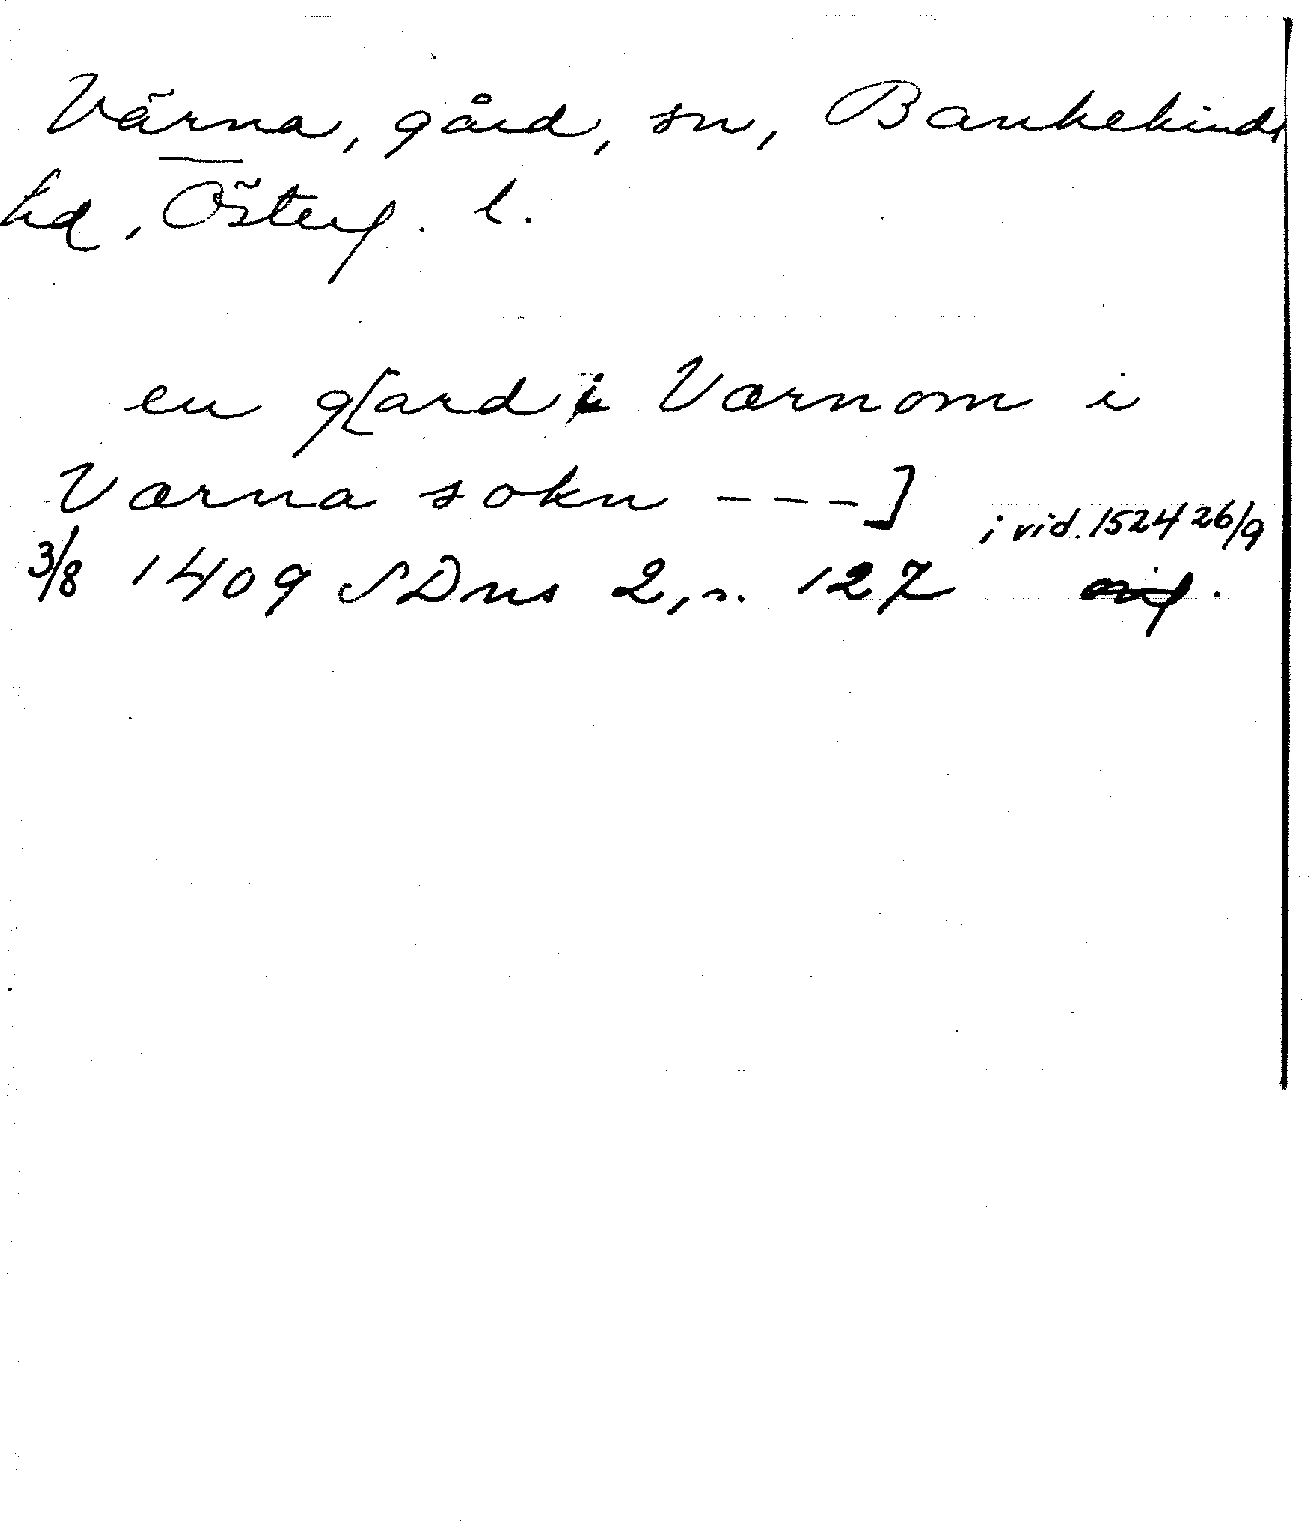 Värna, gård, sn, Bankekinds
hd, Österg. l.
en g[ard iVærnom i
Værna sokn ---]
i vid. 1524 26/9
3/8 1409 SDns 2, s. 127 orig.